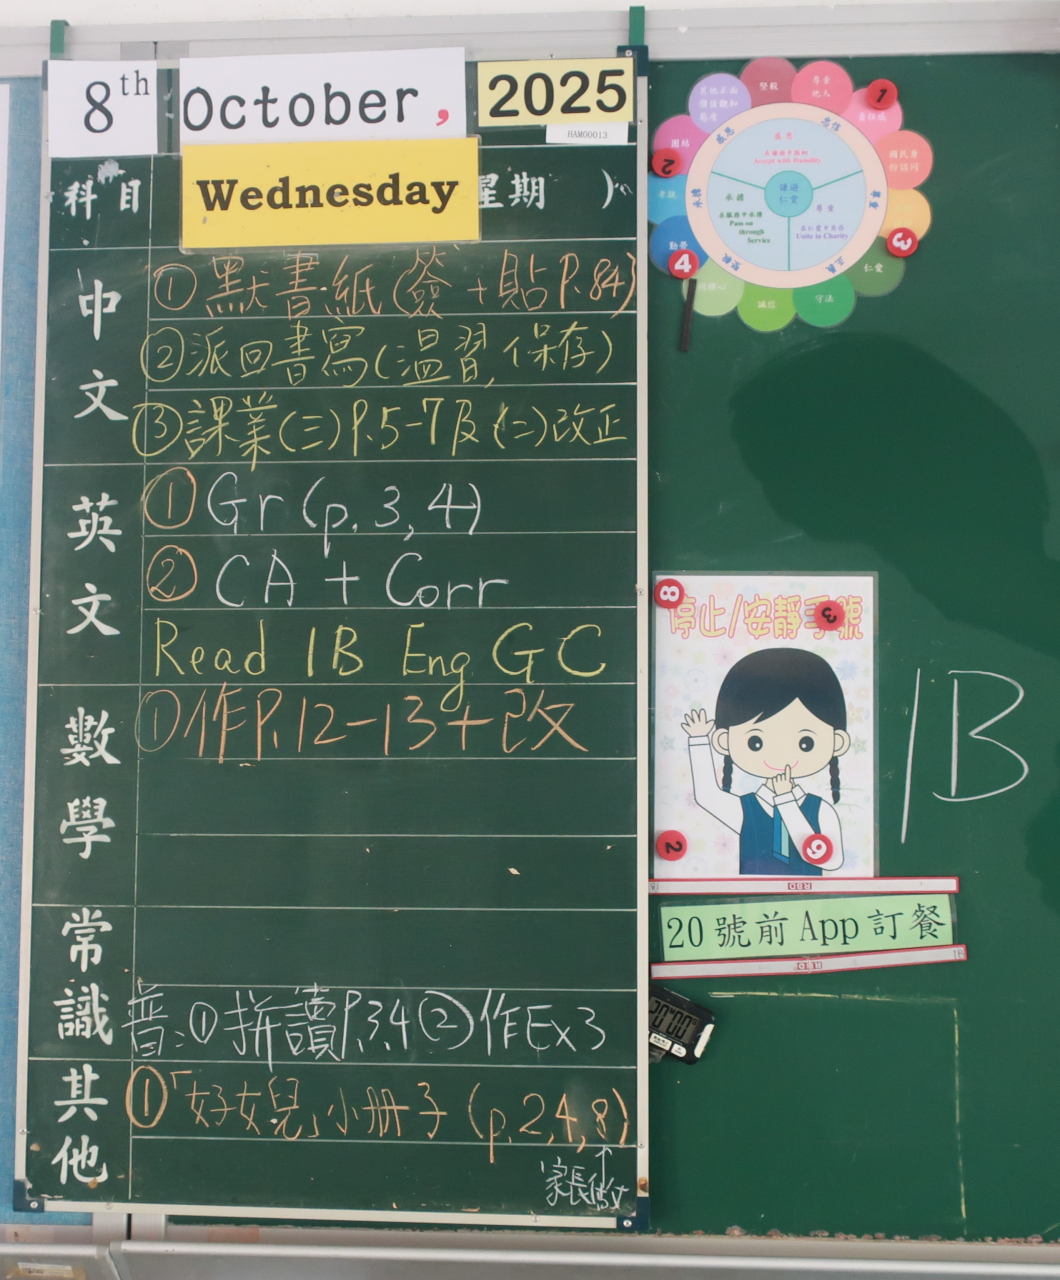 8th October, 2025
HAM00013
Wednesday
科目 星期 )
中文
①默書紙(簽+貼P.84)
②派回書寫(溫習,保存)
③課業(三)P.5-7及(二)改正
英文
① Gr (p.3,4)
② CA + Corr
Read 1B Eng GC
數學
①作P.12-13+改
常識
普:①拼讀P.34②作Ex3
其他
①「好女兒」小冊子(p.2,4,8)
↑
家長做
堅毅
尊重他人
責任感
國民身份認同
仁愛
守法
誠信
同理心
勤勞
孝親
團結
1
2
3
4
感恩
Accept with Humility
承傳
Pass on through Service
尊重
Unite in Charity
謙遜仁愛
8
停止/安靜手號
3
2
9
1B
20號前App訂餐
20:00